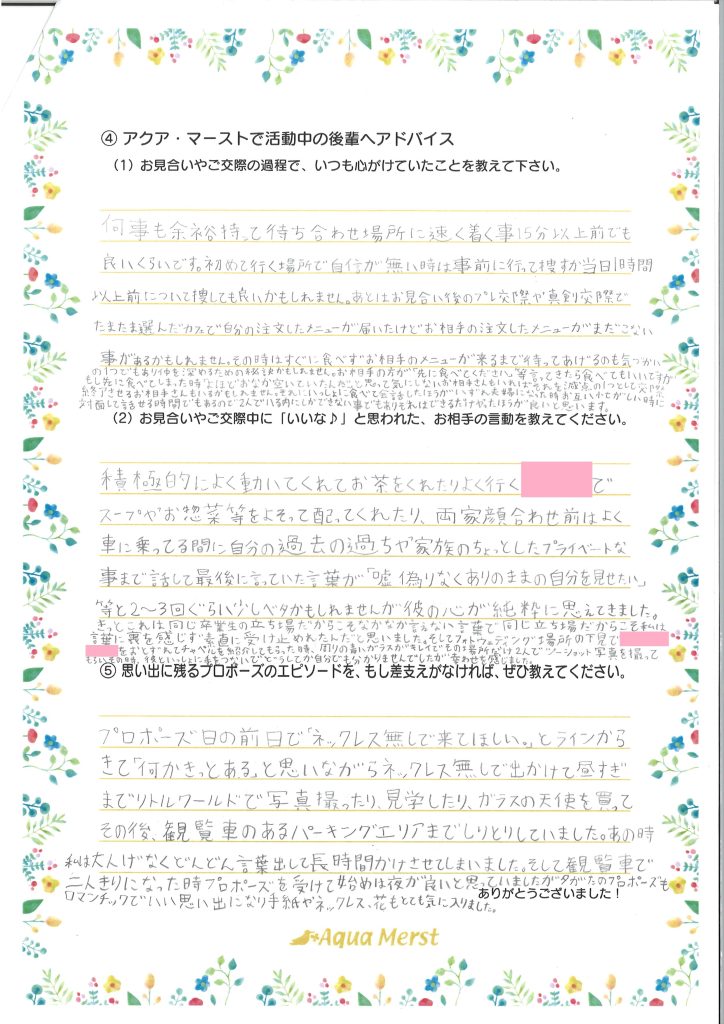 ④ アクア・マーストで活動中の後輩へアドバイス
（1）お見合いやご交際の過程で、いつも心がけていたことを教えて下さい。
何事も余裕持って待ち合わせ場所に速く着く事15分以上前でも
良いくらいです。初めて行く場所で自信が無い時は事前に行って捜すか当日1時間
以上前について捜しても良いかもしれません。あとはお見合い後のプレ交際や真剣交際で
たまたま選んだカフェで自分の注文したメニューが届いたけどお相手の注文したメニューがまだこない
事があるかもしれません。その時はすぐに食べずお相手のメニューが来るまで待ってあげるのも気づかい
の1つでもあり仲を深めるための秘訣かもしれません。お相手の方が「先に食べてください。」等言ってきたら食べてもいいですが
もし先に食べてしまった時「よほどおなか空いていたんだな」と思って気にしないお相手さんもいればそれを減点の1つとして交際
終了させるお相手さんもいるかもしれません。それにいっしょに食べて会話したほうがいずれ夫婦になった時お互いが忙しい時に
対面して話せる時間でもあるので2人でいる内にしかできない事でもありそれはできるだけやったほうが良いと思います。
（2）お見合いやご交際中に「いいな♪」と思われた、お相手の言動を教えてください。
積極的によく動いてくれてお茶をくれたりよく行く で
スープやお惣菜等をよそって配ってくれたり、両家顔合わせ前はよく
車に乗ってる間に自分の過去の過ちや家族のちょっとしたプライベートな
事まで話して最後に言っていた言葉が「嘘偽りなくありのままの自分を見せたい」
等と2〜3回ぐらい少しベタかもしれませんが彼の心が純粋に思えてきました。
きっとこれは同じ卒業生の立ち場だからこそなかなか言えない言葉で同じ立ち場だからこそ私は
言葉に裏を感じず素直に受け止めれたんだと思いました。そしてフォトウェディング場所の下見で
をおとずれてチャペルを紹介してもらった時、周りの青いガラスがキレイでその場所だけ2人でツーショット写真を撮って
もらいその時、彼といっしょに手をつないで どうしてか自分でも分かりませんでしたが幸わせを感じました。
⑤ 思い出に残るプロポーズのエピソードを、もし差支えがなければ、ぜひ教えてください。
プロポーズ日の前日で「ネックレス無しで来てほしい。」とラインから
きて「何かきっとある」と思いながらネックレス無しで出かけて昼すぎ
までリトルワールドで写真撮ったり、見学したり、ガラスの天使を買って
その後、観覧車のあるパーキングエリアまでしりとりしていました。あの時
私は大人げなくどんどん言葉出して長時間かけさせてしまいました。そして観覧車で
二人きりになった時プロポーズを受けて始めは夜が良いと思っていましたが夕がたのプロポーズも
ロマンチックでいい思い出になり手紙やネックレス、花もとても気に入りました。
ありがとうございました！
Aqua Merst